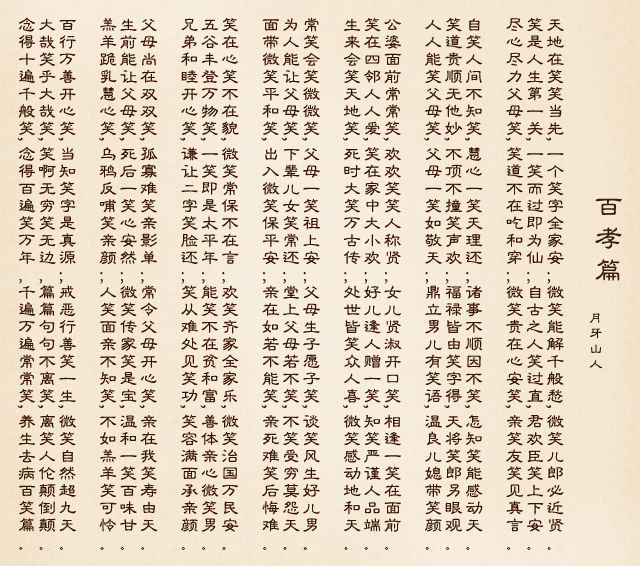 百孝篇
月牙山人
天地在笑笑当先，一个笑字全家安；微笑能解千般愁，微笑儿郎必近贤。
笑是人生第一关，一笑而过即为仙；自古之人笑过直，君欢臣笑上下安。
尽心尽力父母笑，笑道不在吃和穿；微笑贵在心安笑，亲笑友笑见真言。
自笑人间不知笑，慧心一笑天理还；诸事不顺因不笑，怎知笑能感动天。
笑道贵顺无他妙，不顶不撞笑声欢；福禄皆由笑字得，天将笑郎另眼观。
人人能笑父母笑，父母一笑如敬天；鼎立男儿有笑语，温良儿媳带笑颜。
公婆面前常常笑，欢欢笑笑人称贤；女儿贤淑开口笑，相逢一笑在面前。
笑在四邻人人爱，笑在家中大小欢；好儿逢人赠一笑，知笑严谨人品端。
生来会笑天地笑，死时大笑万古传；处世皆笑众人喜，微笑感动地和天。
常笑会笑微微笑，父母一笑祖上安；父母生子愿子笑，谈笑风生好儿男。
为人能让父母笑，下辈儿女笑常还；堂上父母若不笑，不笑受穷莫怨天。
面带微笑平和笑，出入微笑保平安；亲在如若不能笑，亲死难笑后悔难。
笑在心笑不在貌，微笑常保不在言；欢笑齐家全家乐，微笑治国万民安。
五谷丰登万物笑，一笑即是太平年；能笑不在贫和富，善体亲心微笑男。
兄弟和睦开心笑，谦让二字笑脸还；笑从难处见笑功，笑容满面承亲颜。
父母尚在双双笑，孤寡难笑亲影单；常令父母开心笑，亲在我笑寿由天。
生前能让父母笑，死后一笑心安然；微笑传家笑是宝，温和一笑百味甘。
羔羊跪乳慧心笑，乌鸦反哺笑亲颜；人笑面亲不知笑，不如羔羊笑可怜。
百行万善开心笑，当知笑字是真源；戒恶行善笑一生，微笑自然超九天。
大哉笑乎大哉笑，笑啊无穷笑无边；篇篇句句不离笑，离笑人伦颠倒颠。
念得十遍千般笑，念得百遍笑万年；千遍万遍常常笑，养生去病百笑篇。